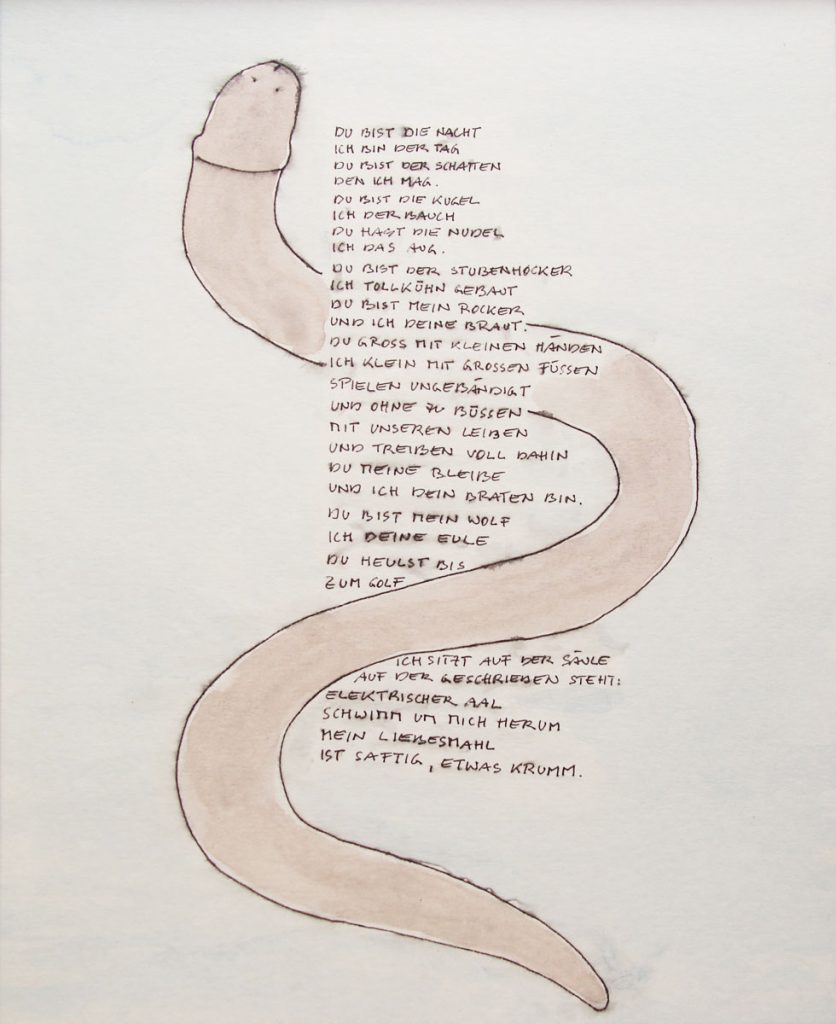 DU BIST DIE NACHT
ICH BIN DER TAG
DU BIST DER SCHATTEN
DEN ICH MAG.
DU BIST DIE KUGEL
ICH DER BAUCH
DU HAST DIE NUDEL
ICH DAS AUG.
DU BIST DER STUBENHOCKER
ICH TOLLKÜHN GEBAUT
DU BIST MEIN ROCKER
UND ICH DEINE BRAUT.
DU GROSS MIT KLEINEN HÄNDEN
ICH KLEIN MIT GROSSEN FÜSSEN
SPIELEN UNGEBÄNDIGT
UND OHNE ZU BÜSSEN
MIT UNSEREN LEIBEN
UND TREIBEN VOLL DAHIN
DU MEINE BLEIBE
UND ICH DEIN BRATEN BIN.
DU BIST MEIN WOLF
ICH DEINE EULE
DU HEULST BIS
ZUM GOLF
ICH SITZT AUF DER SÄULE
AUF DER GESCHRIEBEN STEHT:
ELEKTRISCHER AAL
SCHWIMM UM MICH HERUM
MEIN LIEBESMAHL
IST SAFTIG, ETWAS KRUMM.